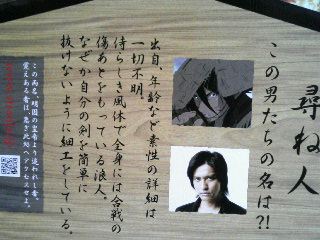 尋ね人
この男たちの名は?!
出自、年齢など素性の詳細は
一切不明
侍らしき風体で全身には合戦の
傷あとをもっている浪人。
なぜか自分の剣を簡単に
抜けないように細工をしている。
この両名、明国の宝奇より追われし者。
覚えある者は、急ぎ此処へ
アクセスせよ。